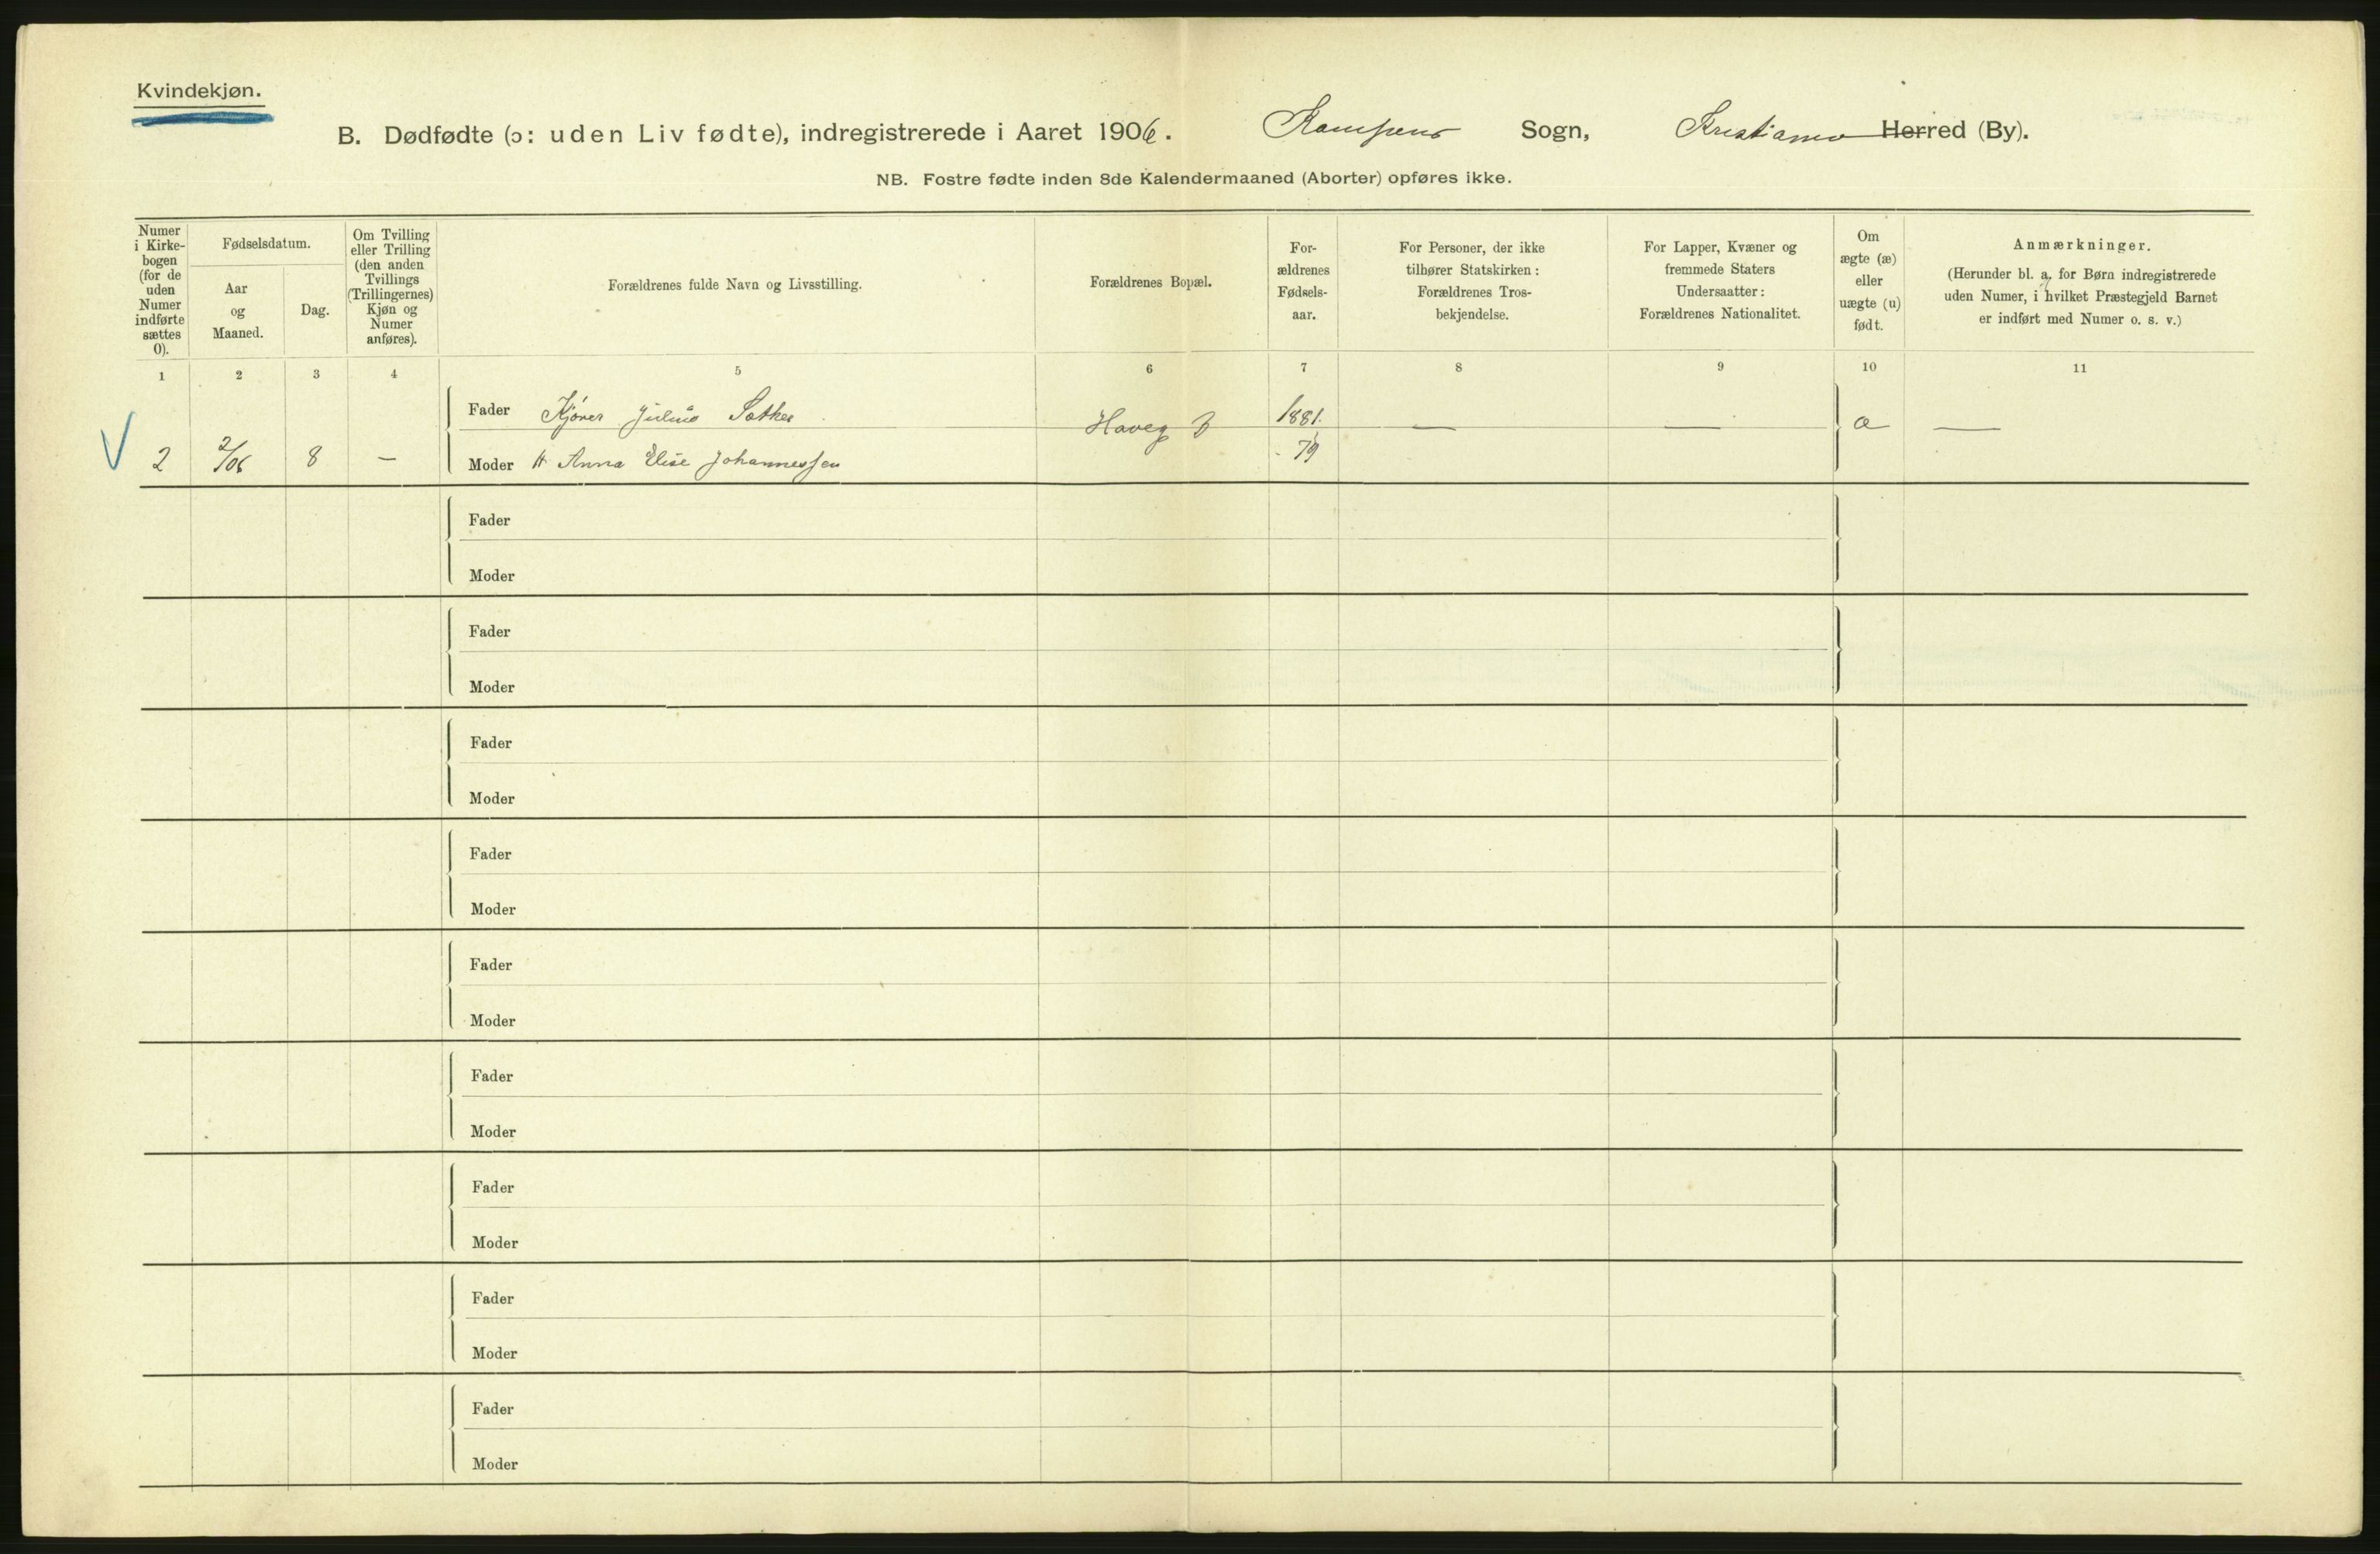 Kvindekjøn.
B. Dødfødte (ɔ: uden Liv fødte), indregistrerede i Aaret 1906. Kampens Sogn, Kristiania Herred (By).
NB. Fostre fødte inden 8de Kalendermaaned (Aborter) opføres ikke.
Numer i Kirke-bogen (for de uden Numer indførte sættes 0).
Fødselsdatum.
Aar og Maaned.
Dag.
Om Tvilling eller Trilling (den anden Tvillings (Trillingernes) Kjøn og Numer anføres).
Forældrenes fulde Navn og Livsstilling.
Forældrenes Bopæl.
For-ældrenes Fødsels-aar.
For Personer, der ikke tilhører Statskirken: Forældrenes Tros-bekjendelse.
For Lapper, Kvæner og fremmede Staters Undersaatter: Forældrenes Nationalitet.
Om ægte (æ) eller uægte (u) født.
Anmærkninger.
(Herunder bl. a. for Børn indregistrerede uden Numer, i hvilket Præstegjeld Barnet er indført med Numer o. s. v.)
1 2 3 4 5 6 7 8 9 10 11
Fader Kjører Julius Sæther Haveg 3 1881. — — æ —
2 2/06 8 — Moder H Anna Elise Johannessen - 79
Fader
Moder
Fader
Moder
Fader
Moder
Fader
Moder
Fader
Moder
Fader
Moder
Fader
Moder
Fader
Moder
Fader
Moder